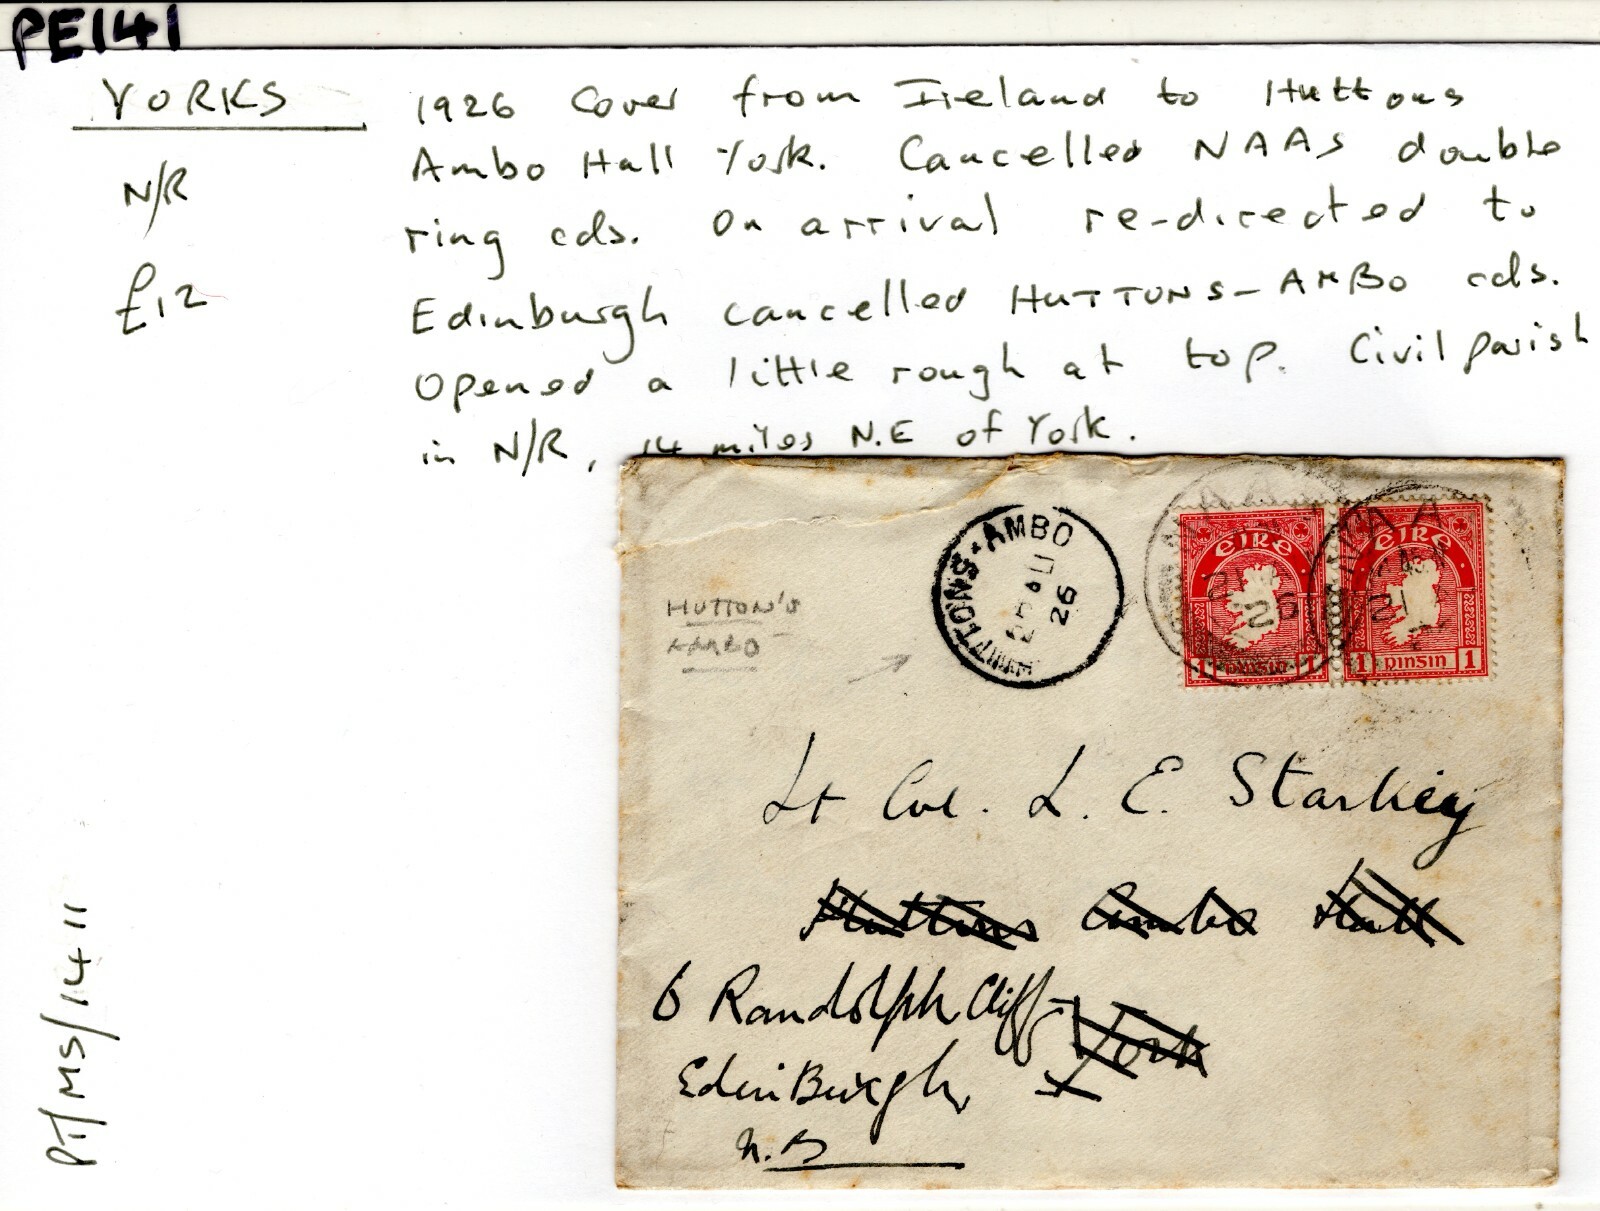 PE141
YORKS
N/R
£12
1926 Cover from Ireland to Huttons
Ambo Hall York. Cancelled NAAS double
ring cds. On arrival re-directed to
Edinburgh cancelled HUTTONS-AMBO cds.
Opened a little rough at top. Civil parish
in N/R, 14 miles N.E of York.
PT/MS/1411
HUTTON'S
AMBO
HUTTONS-AMBO
25 AU
26
EIRE
1 PINSIN 1
EIRE
1 PINSIN 1
Lt Col. L. E. Starkey
Huttons Ambo Hall
York
6 Randolph Cliff
EdinBurgh
N.B